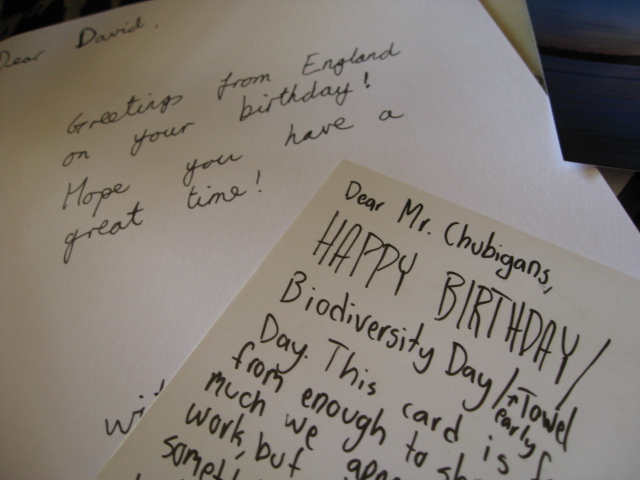 Dear David,
Greetings from England
on your birthday!
Hope you have a
great time!
Dear Mr. Chubigans,
HAPPY BIRTHDAY/
Biodiversity Day/Towel
early
Day. This card is
from enough to
much we
work, but